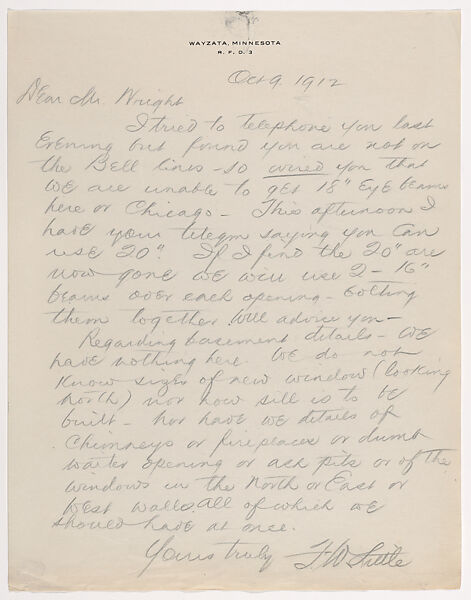 WAYZATA, MINNESOTA
R. F. D. 3
Oct 9 1912
Dear Mr. Wright
I tried to telephone you last
Evening but found you are not on
the Bell lines - so wired you that
we are unable to get 18" Eye beams
here or Chicago - This afternoon I
have your telegm saying you can
use 20". If I find the 20" are
now gone we will use 2 - 16"
beams over each opening - bolting
them together. Will advise you -
Regarding basement details - we
have nothing here. We do not
Know sizes of new window (looking
north) nor how sill is to be
built - nor have we details of
Chimneys or fireplaces or dumb
waiter opening or ash pits or of the
windows in the North or East or
West walls. All of which we
should have at once.
Yours truly F W Little